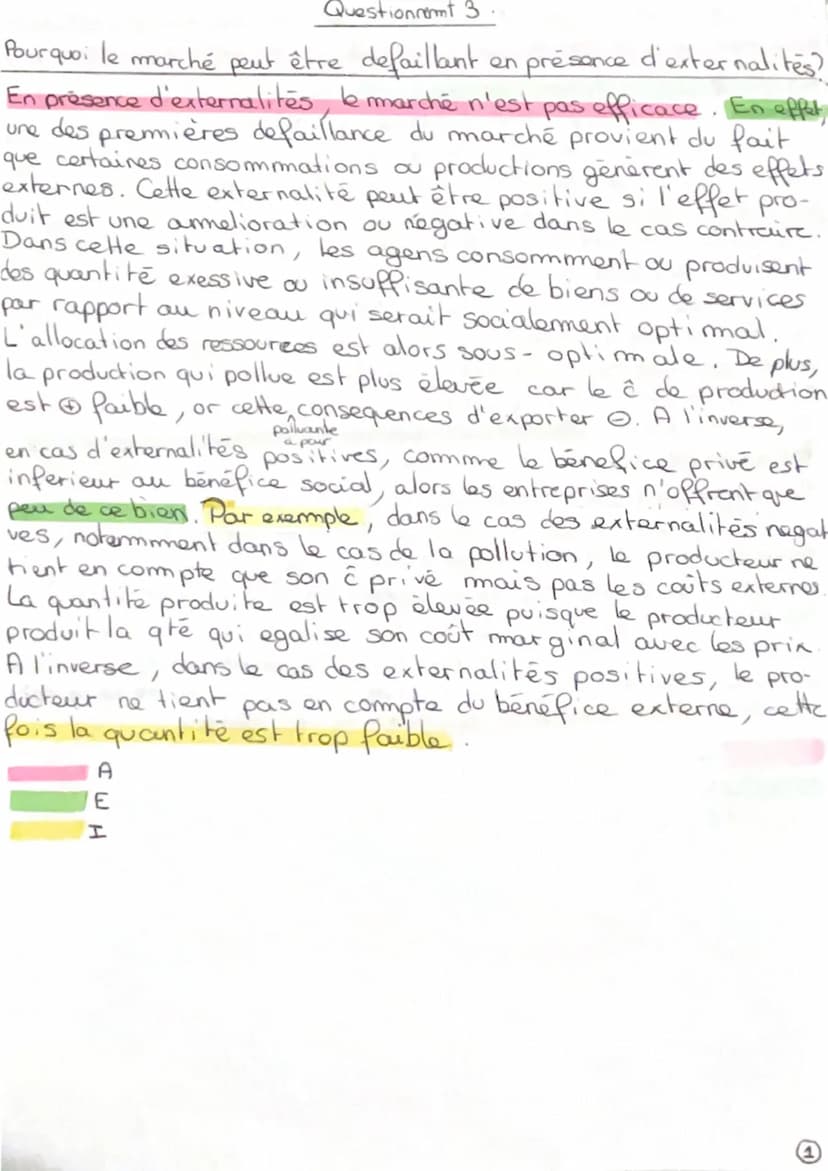 Questionnemt 3.
Pourquoi le marché peut être defaillant en présence d'externalités?
En présence d'externalités, le marché n'est pas efficace. En effet,
une des premières defaillance du marché provient du fait
que certaines consommmations ou productions génèrent des effets
externes. Cette externalité peut être positive si l'effet pro-
duit est une ammelioration ou négative dans le cas contraire.
Dans cette situation, les agens consommment ou produisent
des quantité exessive ou insuffisante de biens ou de services
par rapport au niveau qui serait socialement optimal.
L'allocation des ressources est alors sous-optimale. De plus,
la production qui pollue est plus élevée car le ĉ de production
est ⊕ faible, or cette consequences d'exporter ⊖. A l'inverse,
polluante
a pour
en cas d'externalités positives, comme le bénéfice privé est
inferieur au bénéfice social, alors les entreprises n'offrent que
peu de ce bien. Par exemple, dans le cas des externalités negati
ves, notemmment dans le cas de la pollution, le producteur ne
tient en compte que son ĉ privé mais pas les coûts externes.
La quantité produite est trop élevée puisque le producteur
produit la qté qui egalise son coût marginal avec les prix.
A l'inverse, dans le cas des externalités positives, le pro-
ducteur ne tient pas en compte du bénéfice externe, cette
fois la quantité est trop faible.
A
E
I
1